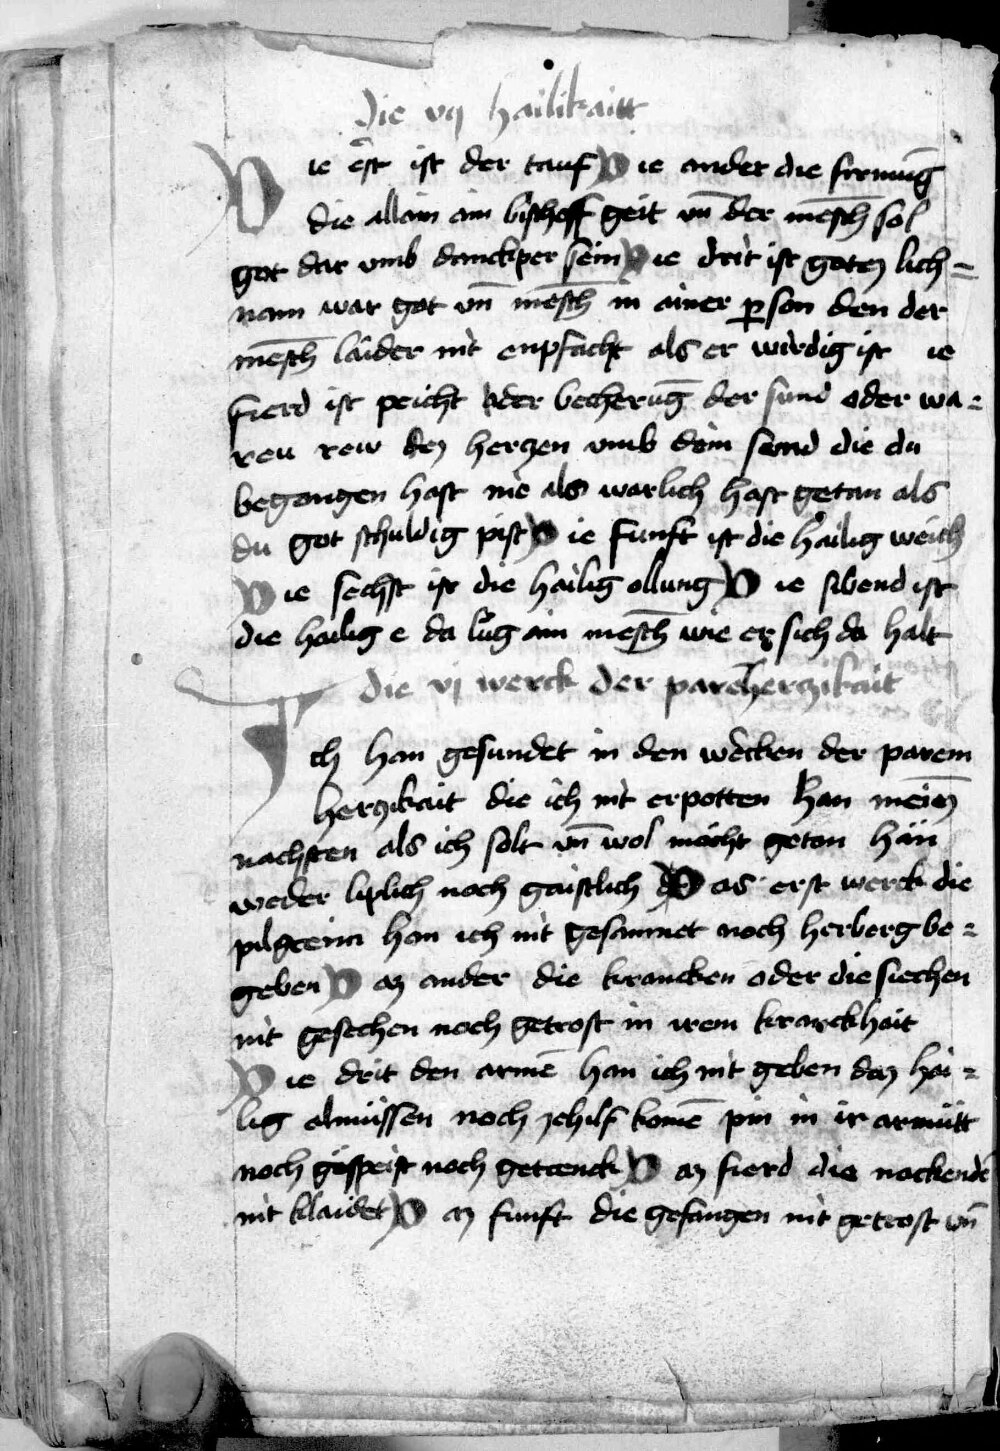 Die vij hailikaitt
Die erst ist der tauf Die ander die firmu̅g
die allain ain bischoff geit vn̅ der me̅sch sol
got dar vmb danckper sein Die drit ist gotez lich=
nam war got vn̅ me̅sch in ainer ꝑson den der
me̅sch laider nit enpfacht als er wirdig ist ie
fierd ist peicht oder becheru̅g der sund oder wa=
reu rew dez herczen vmb dein sund die du
begangen hast nie als warlich hast getan als
du got schuldig pist Die funft ist die hailig weich
Die sechst ist die hailig ollung Die sibend ist
die heilig e da lug ain me̅sch wie er sich da halt
Die vj werck der pare̅herczikait
Ich han gesundet in den wercken der parem
herczikait die ich nit erpotten han meine̅
nachsten als ich solt vn̅ wol mocht getan han
weder liplich noch gaistlich Das erst werck die
pilgreim han ich nit gesamnet noch herberg be=
geben Daz ander die krancken oder die siechen
nit gesechen noch getrost in irem kranckhait
Die drit den arme̅ han ich nit geben daz hai=
lig almüssen noch zehilf kome̅ pin in ir armütt
noch gespeist noch getrenck Daz fierd die nackende
nit klaidet Daz funft die gefangen nit getrost vn̅